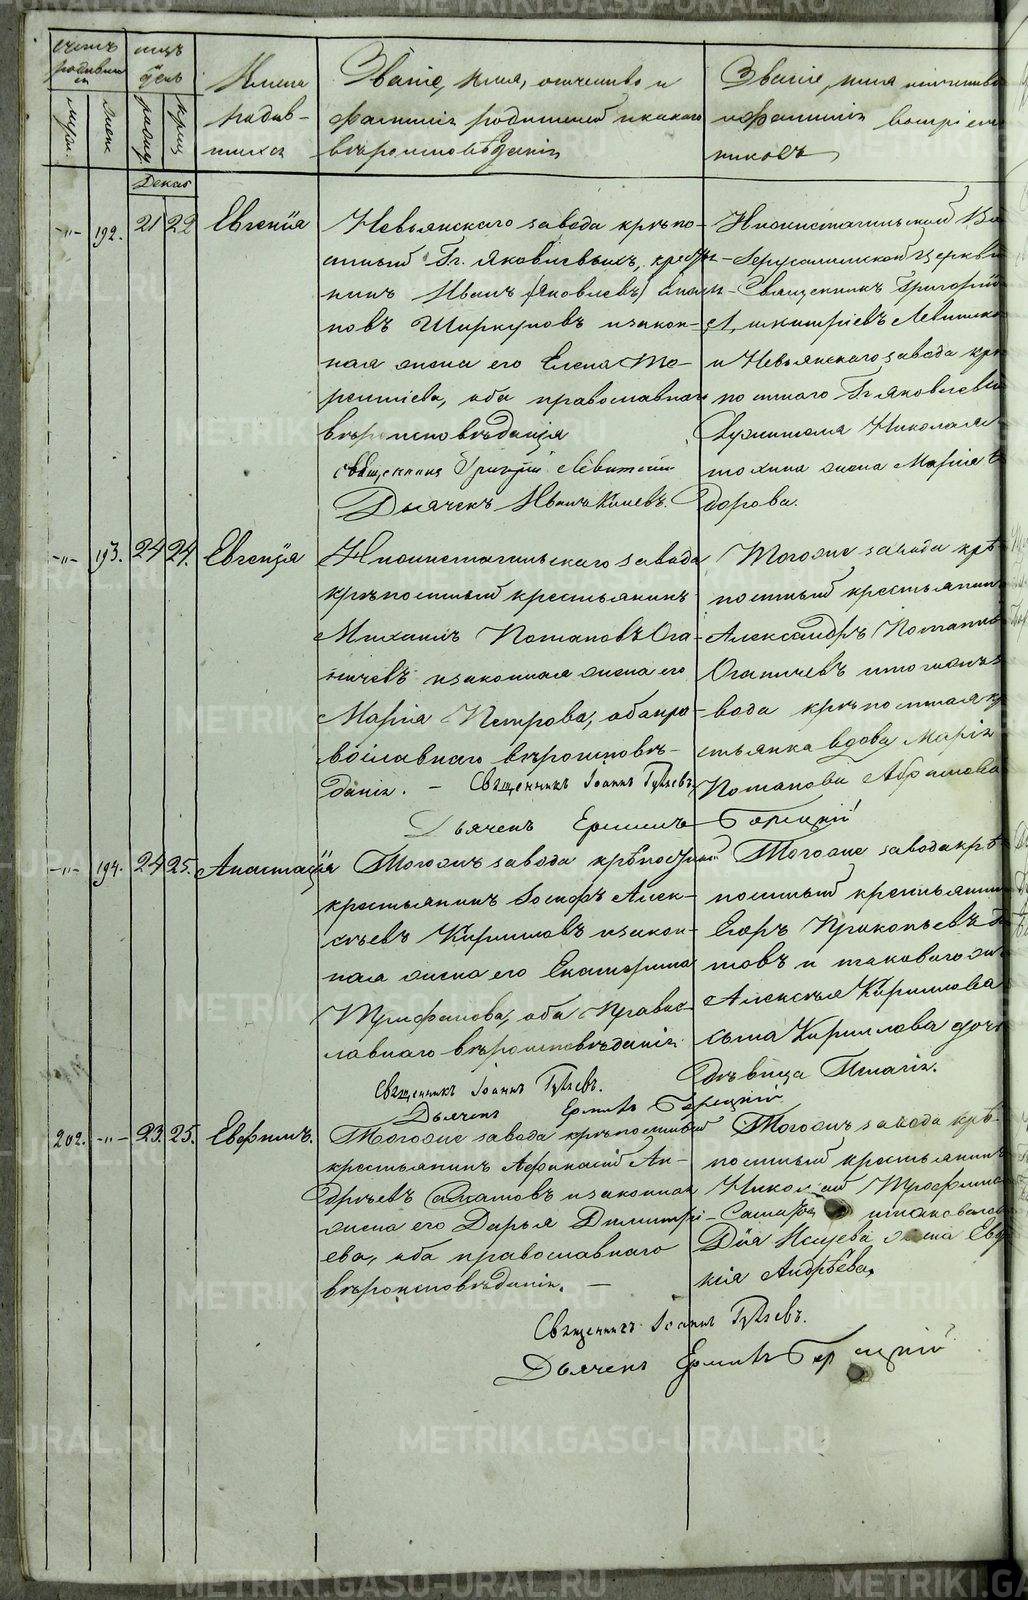 METRIKI.GASO-URAL.RU
Счетъ родившихся
мужес. женс.
мцъ и день
рожд. крещ.
Имена родив-
шихся
Званіе, имя, отчество и
фамилія родителей и какого
вѣроисповѣданія
Званіе, имя, отчество
и фамилія воспріем-
никовъ
Декаб
-"- 192. 21 22 Евгенія
Невьянскаго завода крѣпо-
стный Гг. Яковлевыхъ, кресть-
нинъ Иванъ Яковлевъ
новъ Ширкуновъ и закон-
ная жена его Елена Те-
рентіева, оба православнаго
вѣроисповѣданія
Священникъ Григорій Левитскій
Дьячекъ Иванъ
Нижнетагильской
Іерусалимской церкви
Священникъ Григорій
Димитріевъ Левитск
и Невьянскаго завода крѣ
постнаго Гг. Яковлевы
Николая
жена Марія
дорова.
-"- 193. 24 24. Евгенія
Нижнетагильскаго завода
крѣпостный крестьянинъ
Михаилъ Потаповъ Ога-
ничевъ и законная жена его
Марія Петрова, оба пра-
вославнаго вѣроисповѣ-
данія. – Священникъ Іоаннъ Гуляевъ
Дьячекъ Ермилъ Горецкій
Тогоже завода крѣ
постный крестьянин
Александръ Потапов
Оганичевъ и тогожъ за
вода крѣпостная кр
стьянка вдова Марія
Потапова Абрамова
-"- 194. 24 25. Анастасія
Тогожъ завода крѣпостный
крестьянинъ Іосифъ Алек-
сѣевъ Кирилловъ и закон-
ная жена его Екатерина
Трифанова, оба Правос-
лавнаго вѣроисповѣданія
Священникъ Іоаннъ Гуляевъ.
Дьячекъ Ермилъ Горецкій
Тогоже завода крѣ
постный крестьянин
Егоръ Прокопьевъ
товъ и таковаго же
Алексѣя Кирилова
сына Кирилова дочь
дѣвица Пелагія.
202. -"- 23. 25. Евфимъ.
Тогоже завода крѣпостный
крестьянинъ Афанасій Ан-
дреевъ и законная
жена его Дарья Димитрі-
ева, оба православнаго
вѣроисповѣданія. –
Тогожъ завода крѣ-
постный крестьянинъ
Николай Трофимо
и таковаго
жена Евдо
кія Андрѣева,
Священникъ Іоаннъ Гуляевъ.
Дьячекъ Ермилъ Горецкій